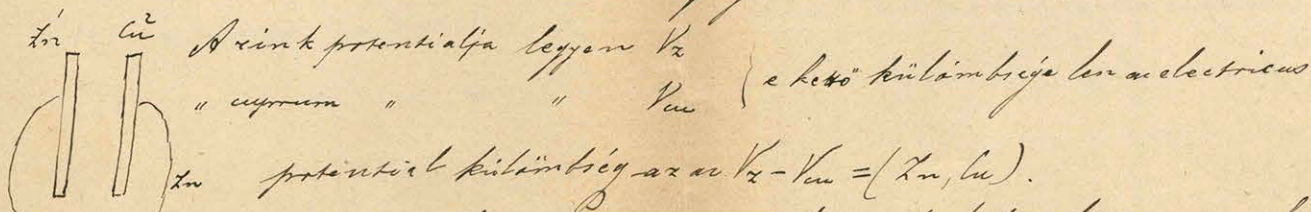 Zn Cu
A zink potentialja legyen Vz
„ cuprum „ „ Vcu } e kettő külömbsége len az electricus
Zn potential külömbség az az Vz - Vcu = (Zn, Cu).